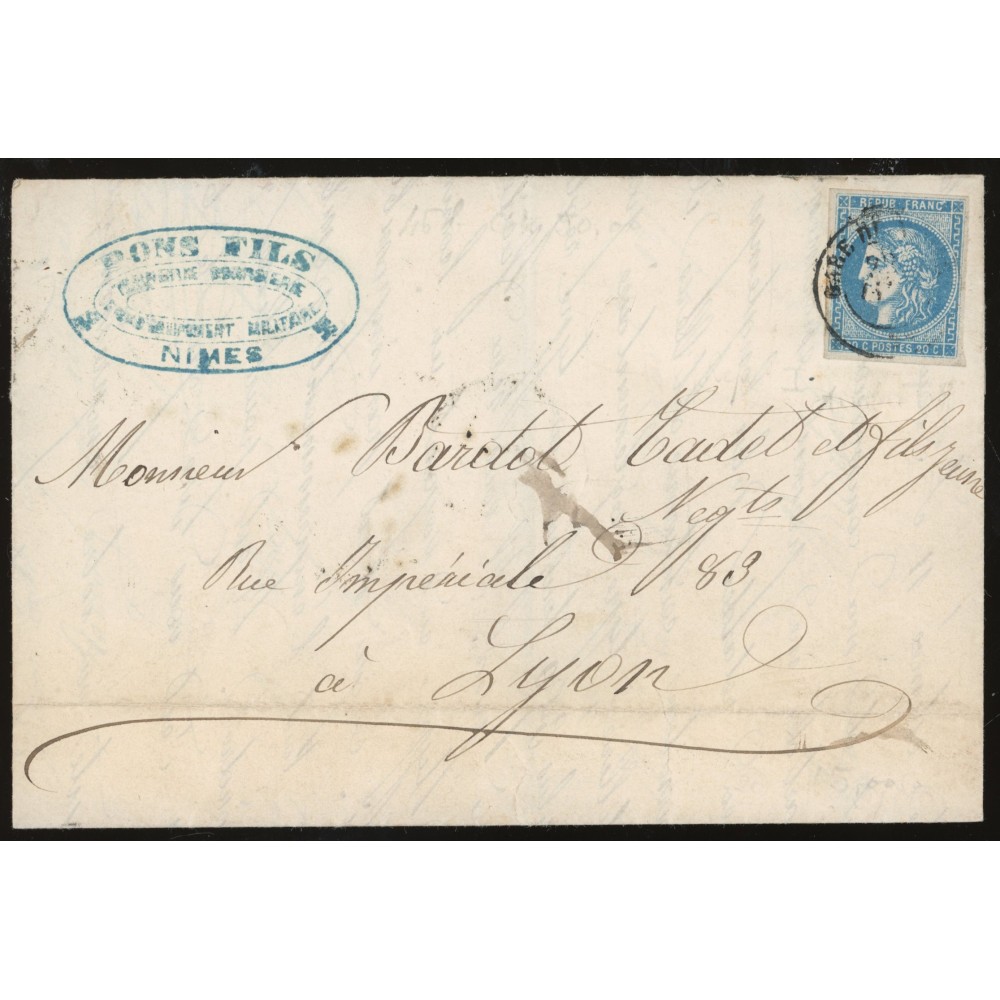 PONS FILS
MILITAIRE
NIMES
REPUB FRANC
GARE
20 C POSTES 20 C
Monsieur Bardot Cadet et fils jeune
Negts
Rue Impériale 83
à Lyon